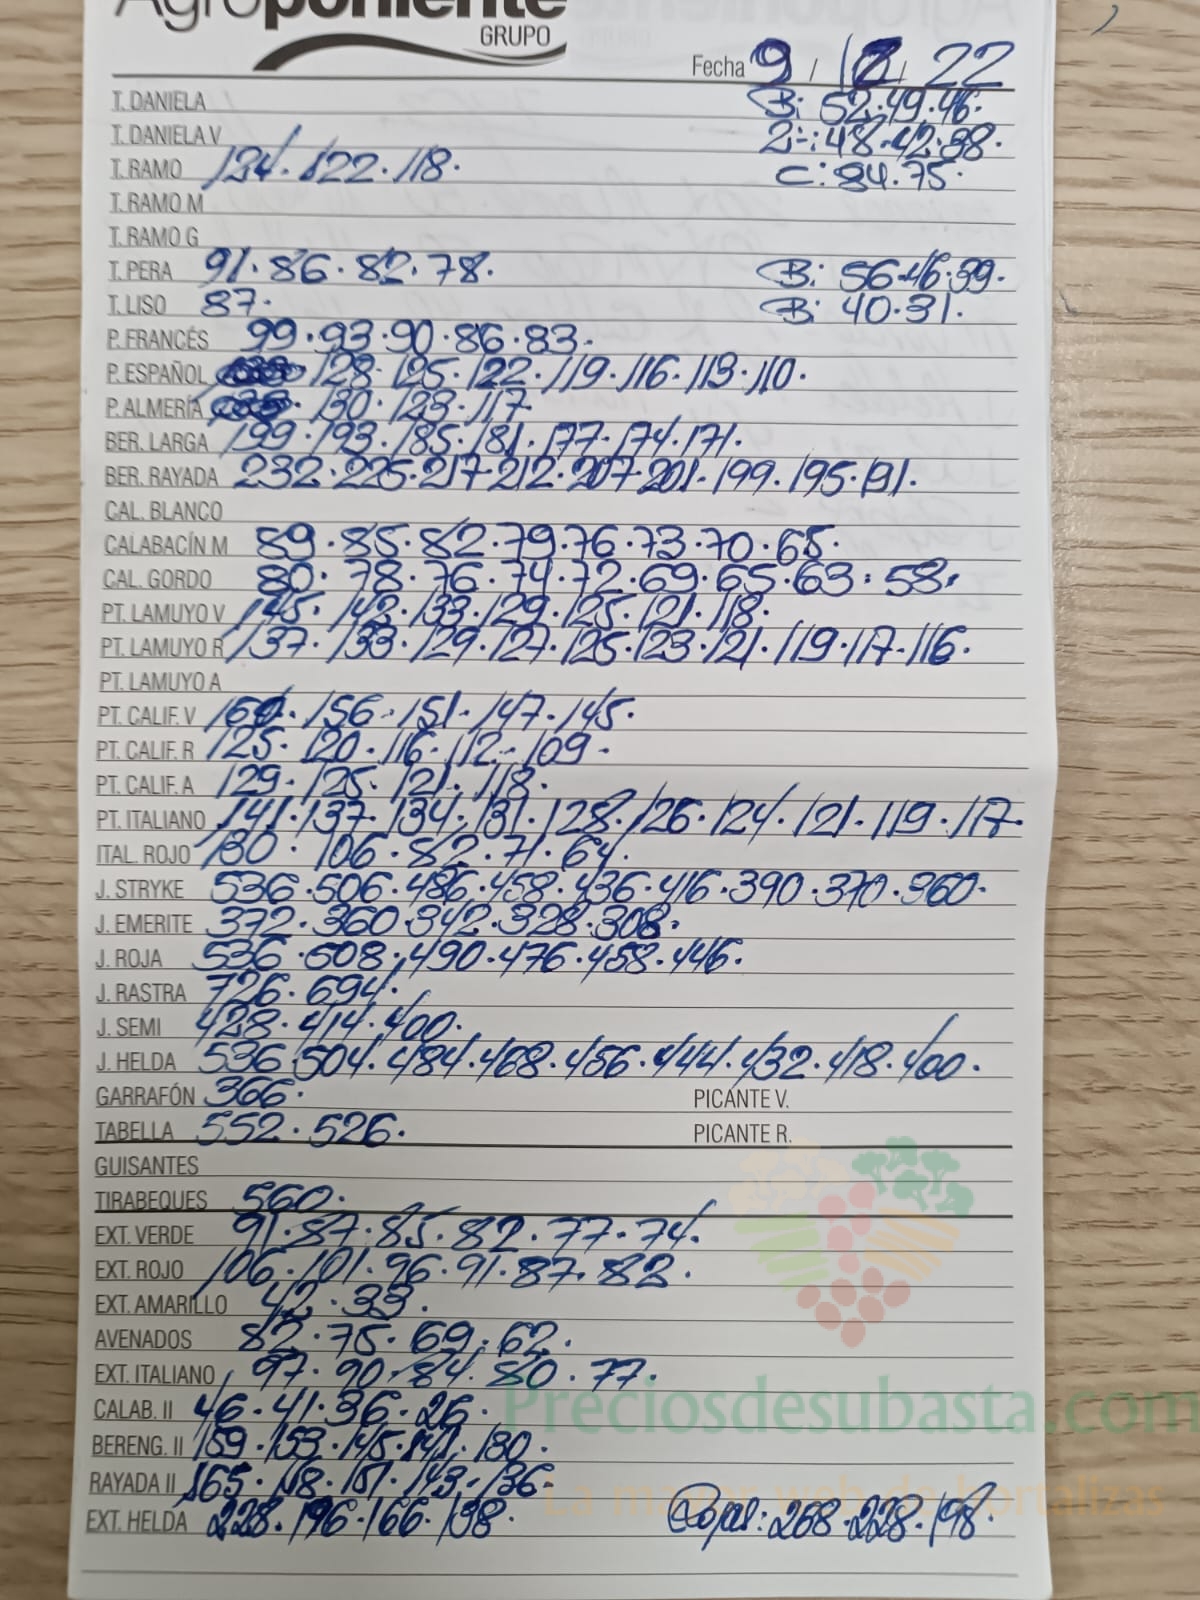 Agroponiente
GRUPO
Fecha 9 / 12 / 22
T. DANIELA B: 52·49·46·
T. DANIELA V 2ª: 48·42·38·
T. RAMO 134·122·118· C: 84·75·
T. RAMO M
T. RAMO G
T. PERA 91·86·82·78· B: 56·46·39·
T. LISO 87· B: 40·31·
P. FRANCÉS 99·93·90·86·83·
P. ESPAÑOL 128·125·122·119·116·113·110·
P. ALMERÍA 130·123·117
BER. LARGA 199·193·185·181·177·174·171·
BER. RAYADA 232·225·217·212·207·201·199·195·191·
CAL. BLANCO
CALABACÍN M 89·85·82·79·76·73·70·65·
CAL. GORDO 80·78·76·74·72·69·65·63·58·
PT. LAMUYO V 145·142·133·129·125·121·118·
PT. LAMUYO R 137·133·129·127·125·123·121·119·117·116·
PT. LAMUYO A
PT. CALIF. V 156·151·147·145·
PT. CALIF. R 125·120·116·112·109·
PT. CALIF. A 129·125·121·118·
PT. ITALIANO 141·137·134·131·128·126·124·121·119·117·
ITAL. ROJO 130·106·82·71·64·
J. STRYKE 536·506·486·458·436·416·390·370·360·
J. EMERITE 372·360·342·328·308·
J. ROJA 536·508·490·476·458·446·
J. RASTRA 726·694·
J. SEMI 428·414·400·
J. HELDA 536·504·484·468·456·444·432·418·400·
GARRAFÓN 366· PICANTE V.
TABELLA 552·526· PICANTE R.
GUISANTES
TIRABEQUES 560·
EXT. VERDE 91·87·85·82·77·74·
EXT. ROJO 106·101·96·91·87·82·
EXT. AMARILLO 42·33·
AVENADOS 82·75·69·62·
EXT. ITALIANO 97·90·84·80·77·
CALAB. II 46·41·36·26·
Preciosdesubasta.com
BERENG. II 159·153·145·141·130·
RAYADA II 165·151·143·136·
La mayor web de hortalizas
EXT. HELDA 228·196·166·138· Rojas: 268·228·198·